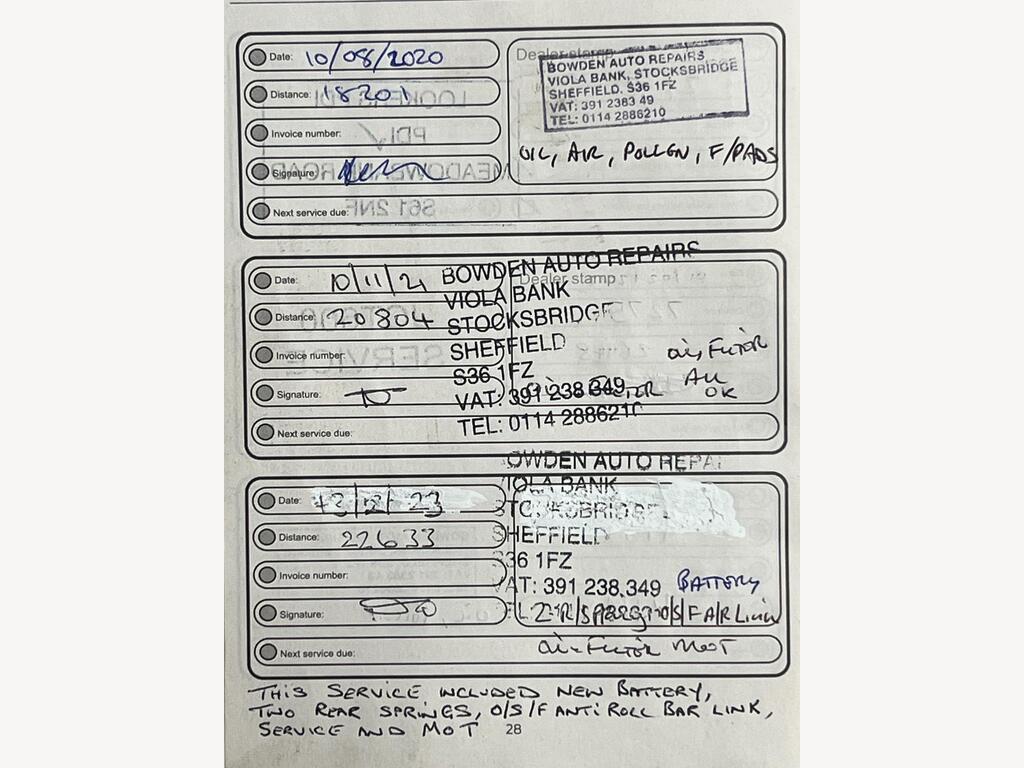 Date: 10/08/2020
Distance: 18201
Invoice number:
Signature:
Next service due:
Dealer stamp
BOWDEN AUTO REPAIRS
VIOLA BANK, STOCKSBRIDGE
SHEFFIELD. S36 1FZ
VAT: 391 2383 49
TEL: 0114 2886210
OIL, AIR, POLLEN, F/PADS
LOOKERS
PDI
MEADOWBANK ROAD
S61 2NF
Date: 10/11/21
Distance: 20804
Invoice number:
Signature:
Next service due:
Dealer stamp
BOWDEN AUTO REPAIRS
VIOLA BANK
STOCKSBRIDGE
SHEFFIELD
S36 1FZ
VAT: 391 238 349
TEL: 0114 2886210
OIL, FILTER
ALL
OK
SERVICE
Date: 13/12/23
Distance: 22633
Invoice number:
Signature:
Next service due:
BOWDEN AUTO REPAI
VIOLA BANK
STOCKSBRIDGE
SHEFFIELD
S36 1FZ
VAT: 391 238.349
BATTERY
2 R/SPRINGS O/S/F A/R LINK
OIL-FILTER MOT
THIS SERVICE INCLUDED NEW BATTERY,
TWO REAR SPRINGS, O/S/F ANTI ROLL BAR LINK,
SERVICE AND MOT
28